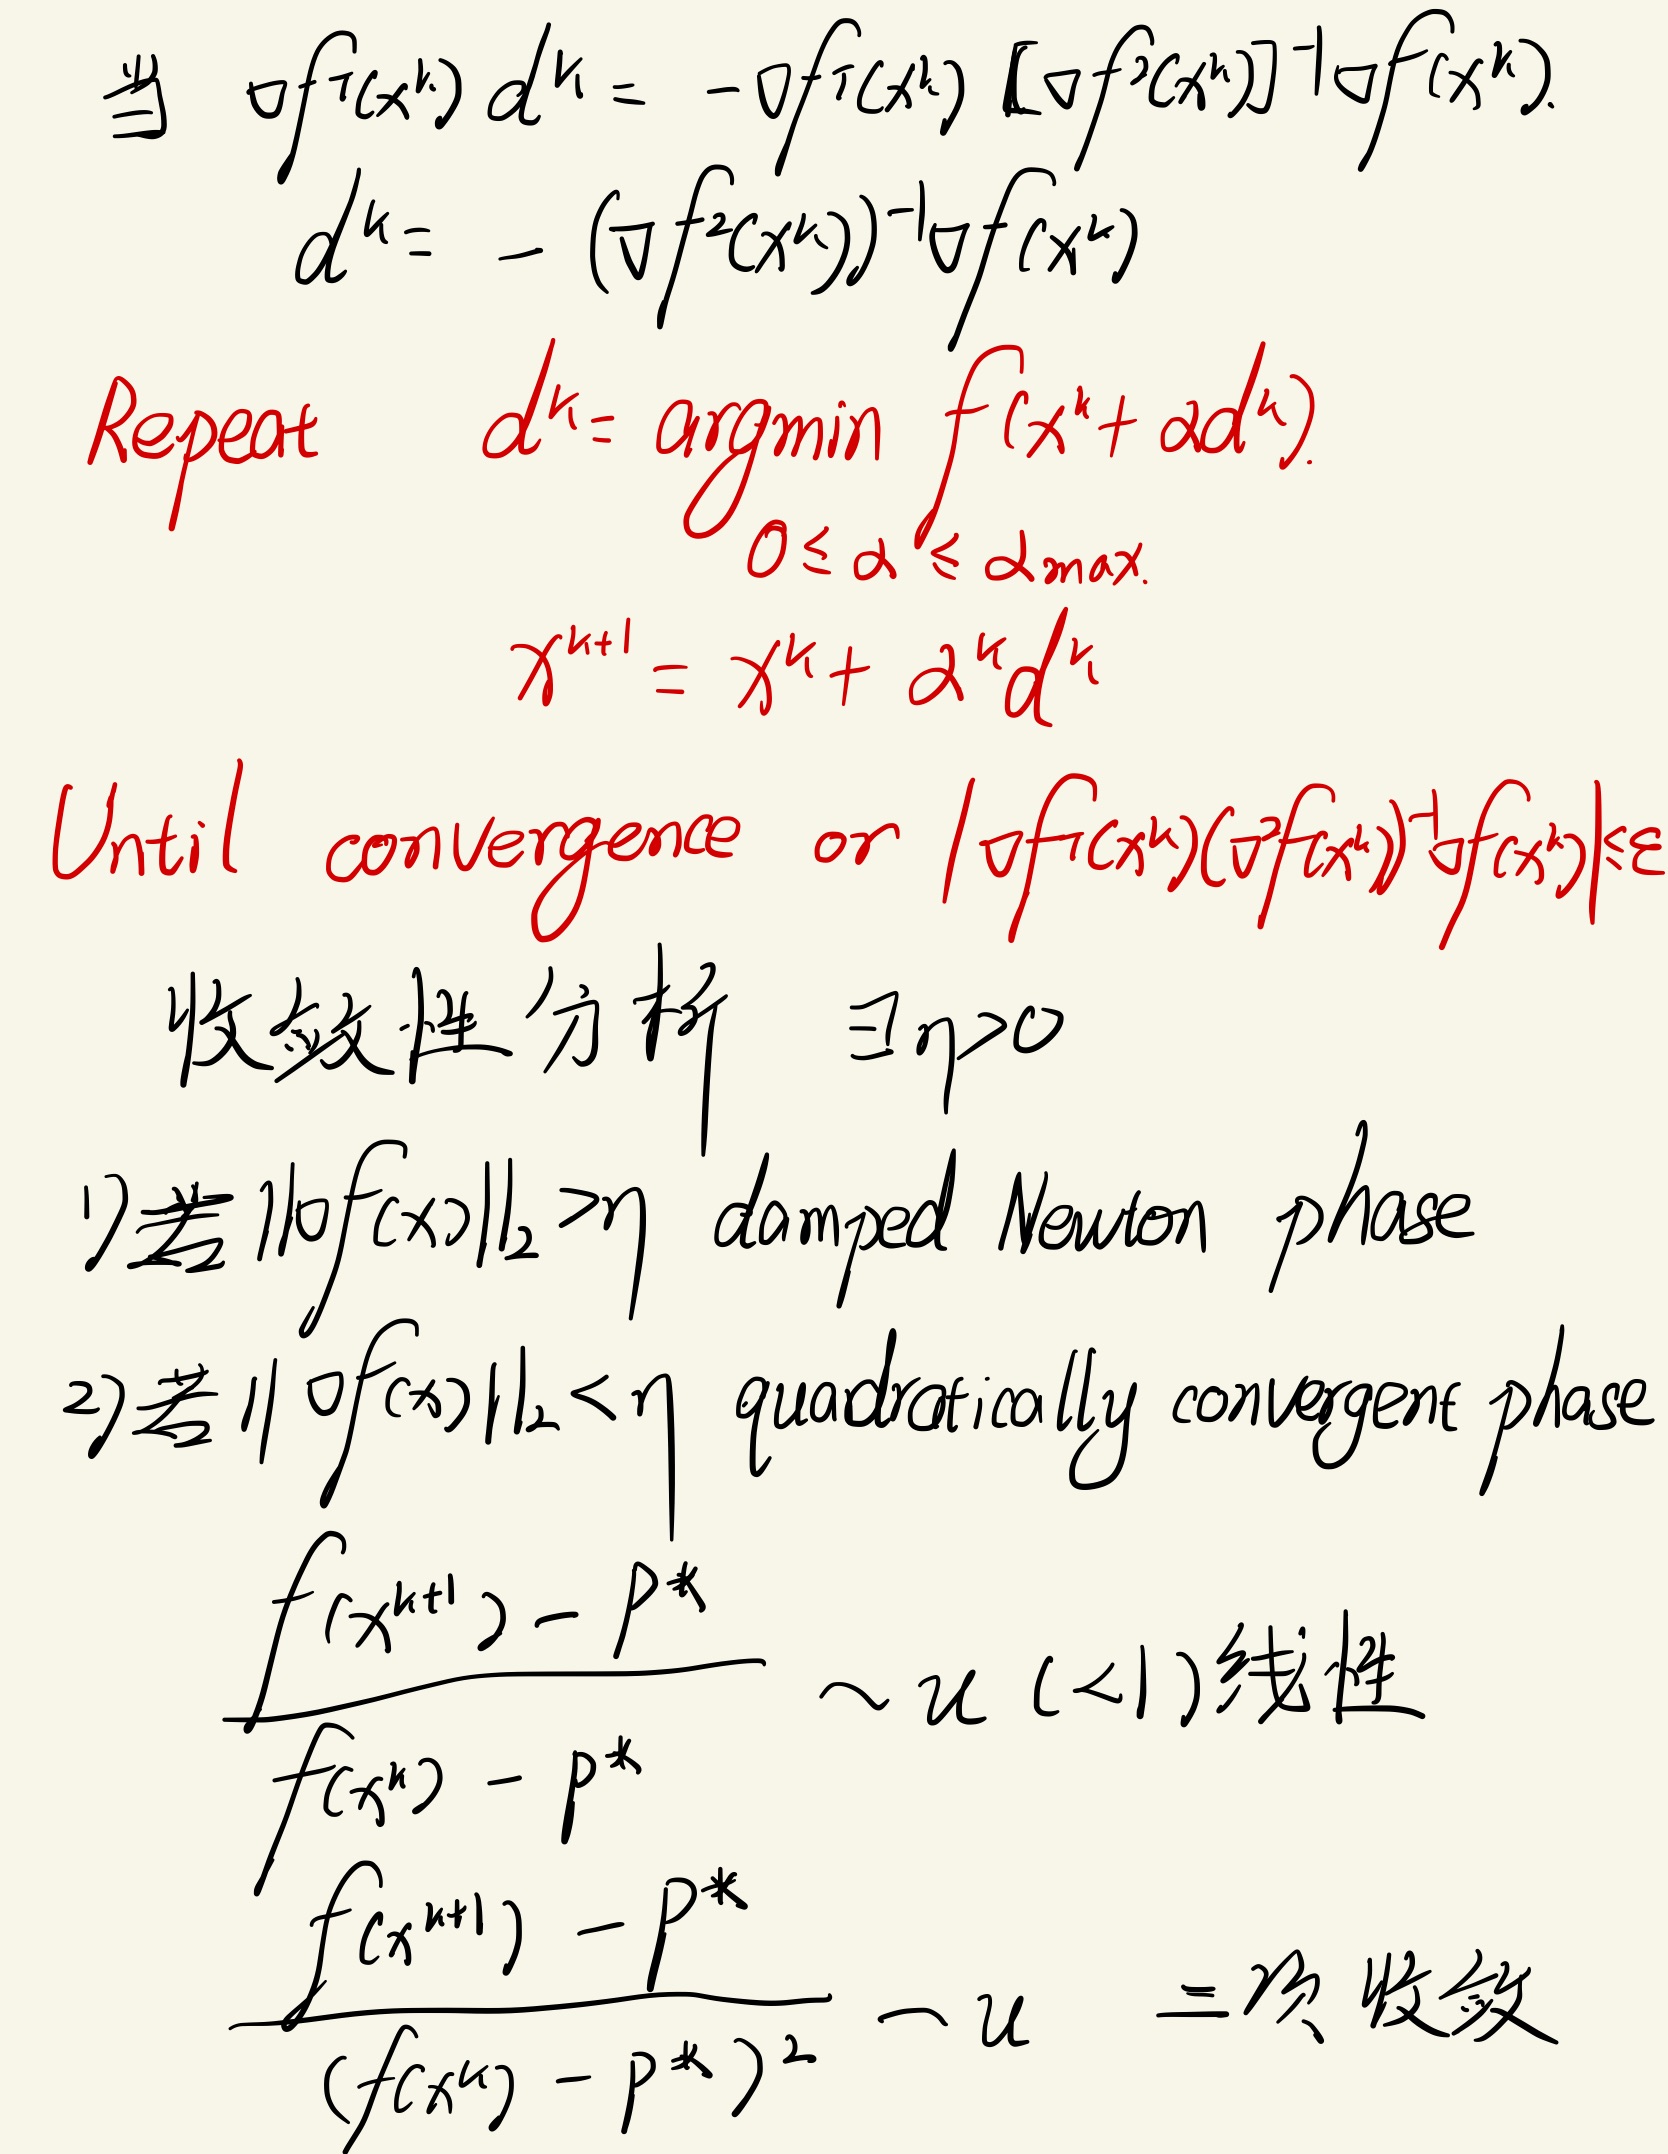 当 ∇fᵀ(xᵏ) dᵏ = -∇fᵀ(xᵏ) [∇f²(xᵏ)]⁻¹∇f(xᵏ).
dᵏ = - (∇f²(xᵏ))⁻¹∇f(xᵏ)
Repeat dᵏ = argmin f(xᵏ + αdᵏ).
0 ≤ α ≤ αmax.
xᵏ⁺¹ = xᵏ + αᵏdᵏ
Until convergence or |∇fᵀ(xᵏ)(∇²f(xᵏ))⁻¹∇f(xᵏ)| ≤ ε
收敛性分析 ∃η>0
1) 若 ||∇f(x)||₂ > η damped Newton phase
2) 若 ||∇f(x)||₂ < η quadratically convergent phase
f(xᵏ⁺¹) - P*
~ u (<1) 线性
f(xᵏ) - P*
f(xᵏ⁺¹) - P*
~ u 二次收敛
(f(xᵏ) - P*)²